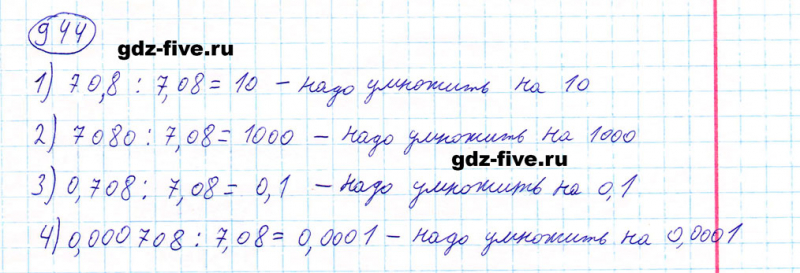 944
gdz-five.ru
1) 70,8 : 7,08 = 10 – надо умножить на 10
2) 7080 : 7,08 = 1000 – надо умножить на 1000
gdz-five.ru
3) 0,708 : 7,08 = 0,1 – надо умножить на 0,1
4) 0,000708 : 7,08 = 0,0001 – надо умножить на 0,0001